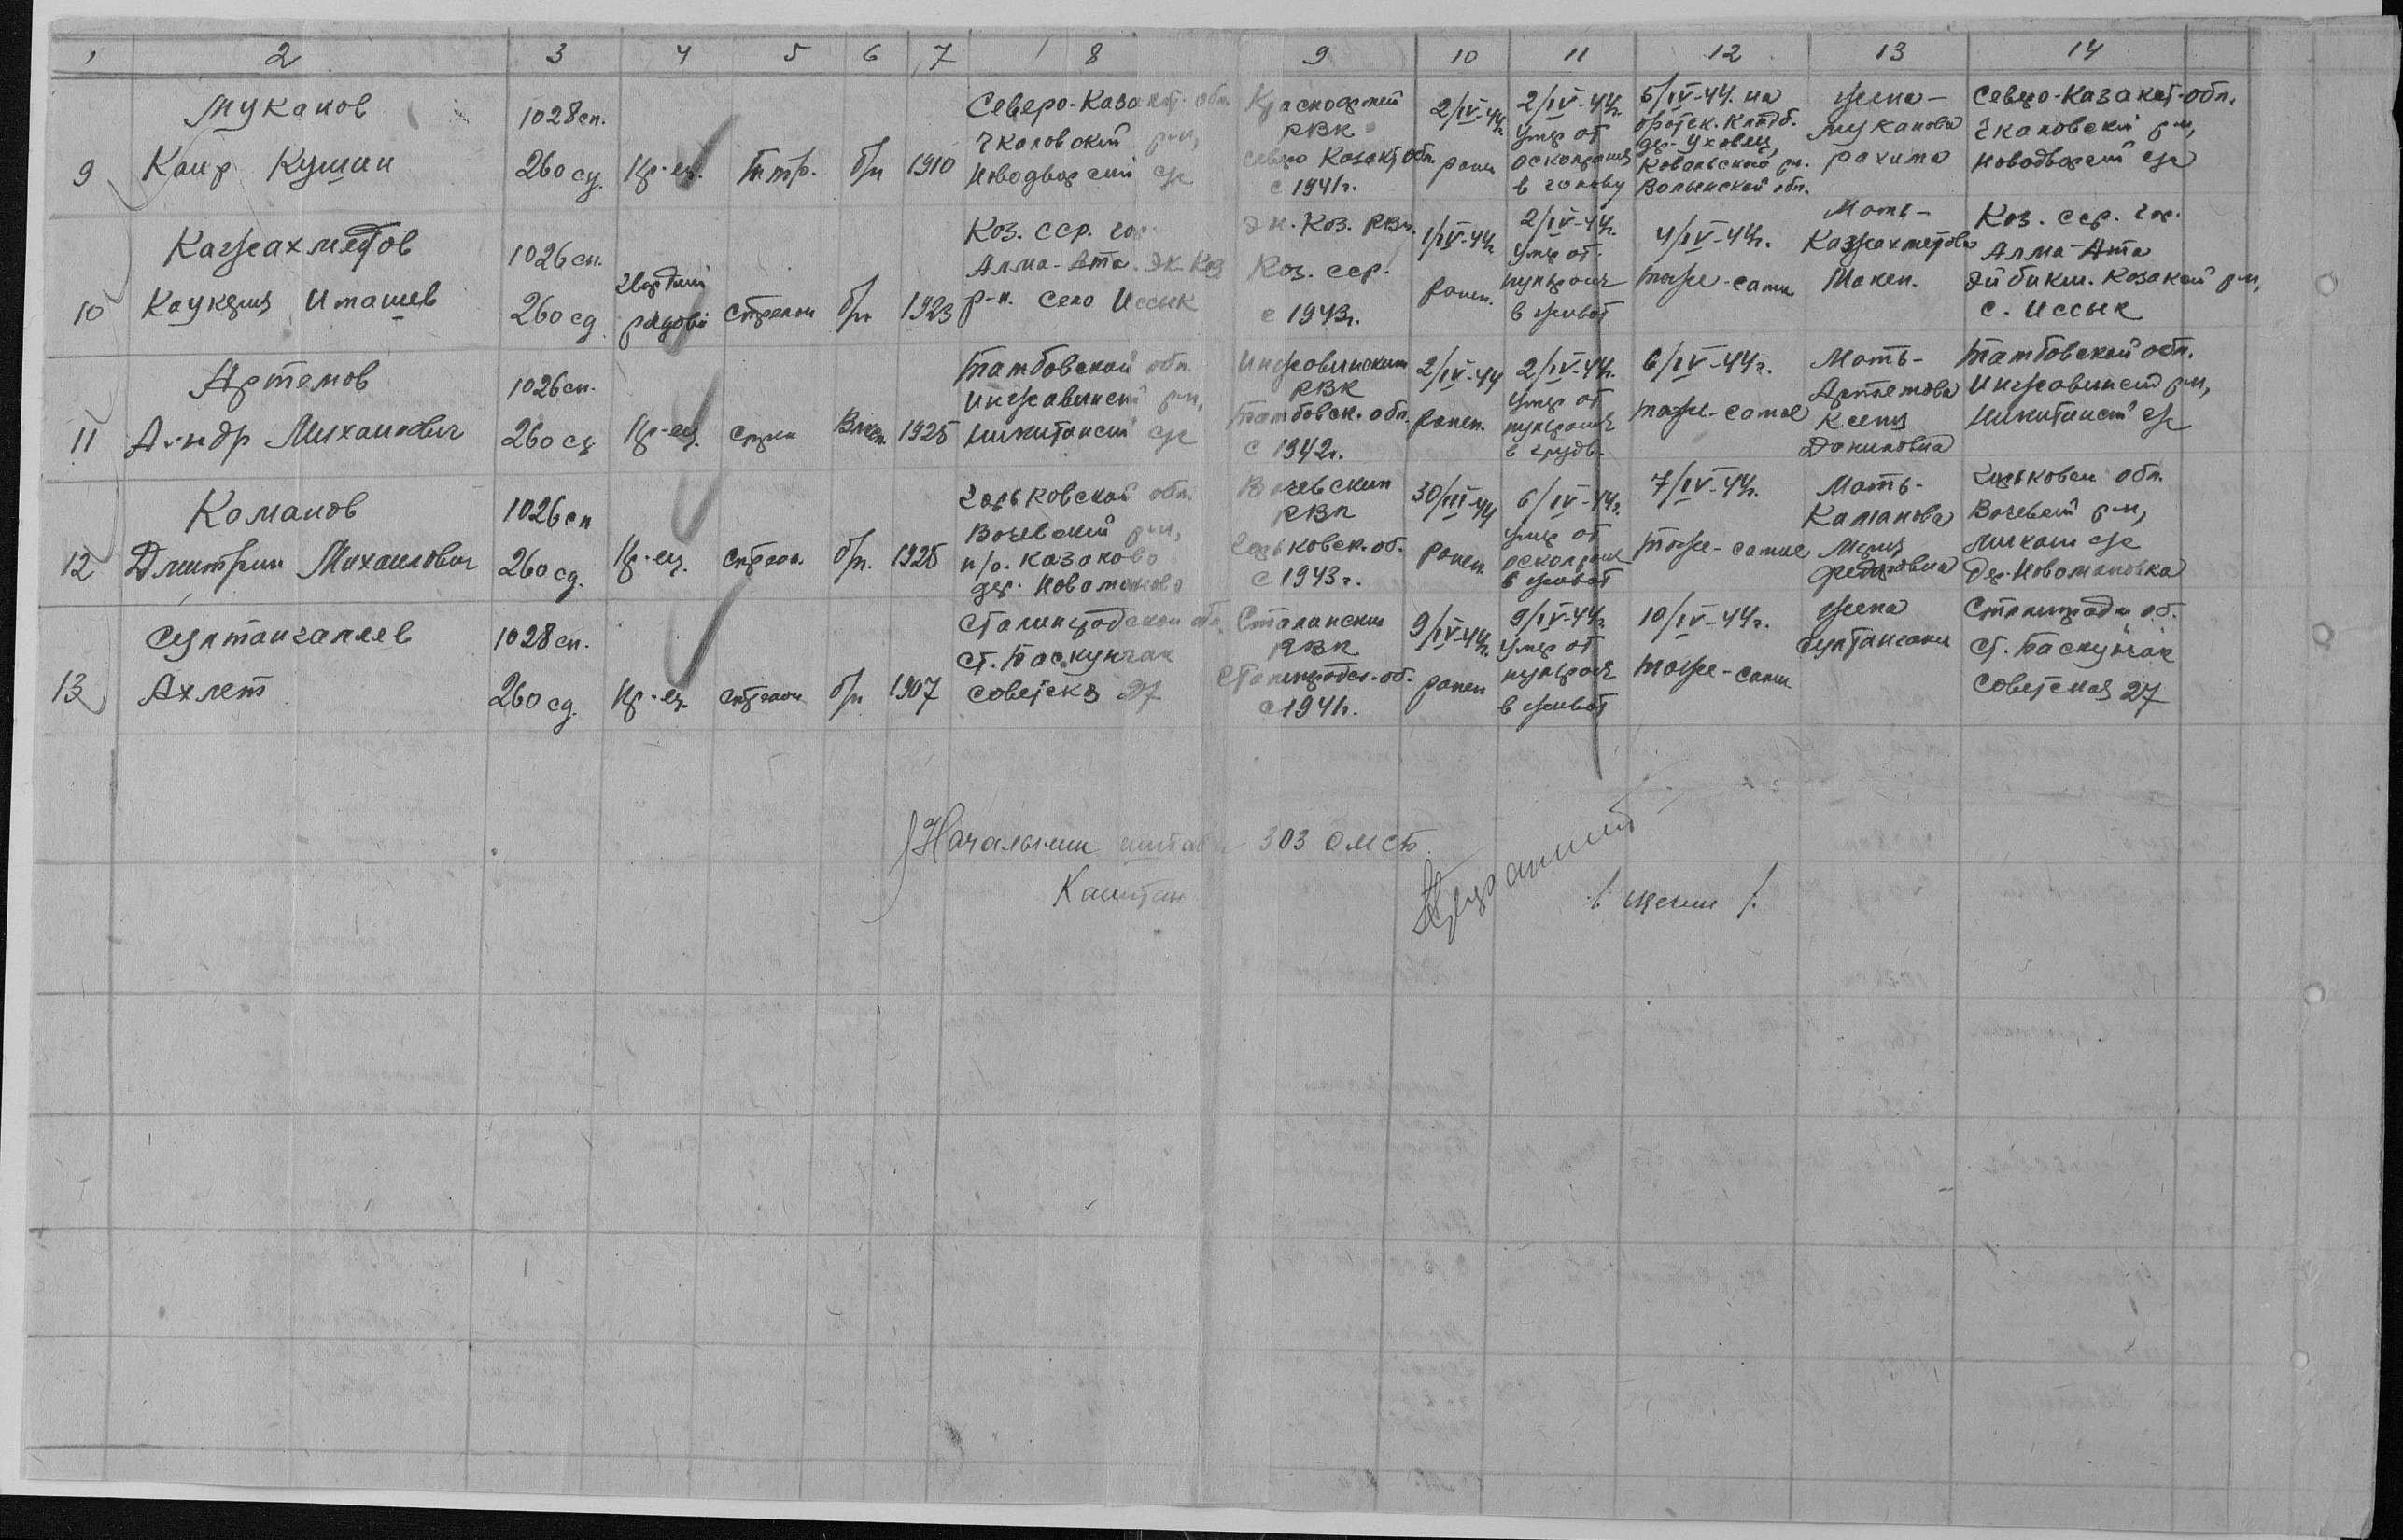 1 2 3 4 5 6 7 8 9 10 11 12 13 14
9
Муканов
Каир Кушан
1028 сп.
260 сд.
Кр-ец.
б/п
1910
Северо-Казахст. обл.
Чкаловский р-н,
Новодворский с/с
РВК
Северо Казахст обл.
с 1941 г.
2/IV-44г.
ранен
2/IV-44г.
умер от
оск. ранен.
в голову
5/IV-44г. на
братск. кладб.
дер. Уховец,
Ковельский р-н.
Волынской обл.
жена-
Муканова
Рахима
Северо-Казахст-обл.
Чкаловский р-н,
Новодворский с/с
10
Кажахметов
Иташев
1026 сп.
260 сд
рядовой
стрелок
б/п
1923
Каз. сср. гор.
Алма-Ата. Эк-Каз
р-н. Село Иссык
Эк. Каз. РВК.
Каз. сср.
с 1943 г.
1/IV-44г.
ранен.
2/IV-44г.
умер от
пул. ранен.
в живот
4/IV-44г.
там же-самое
Мать-
Кажахметова
Макен.
Каз. сср. гор.
Алма-Ата
Казахский р-н,
с. Иссык
11
Артемов
А-ндр Михайлович
1026 сп.
260 сд
Кр-ец.
стрелок
Влксм.
1925
Тамбовской обл.
Инжавинский р-н,
Никитинский с/с
Инжавинским
РВК
Тамбовск. обл.
с 1942 г.
2/IV-44
ранен.
2/IV-44г.
умер от
пул. ранен.
в грудь-
6/IV-44г.
там же-самое
Мать-
Артемова
Ксения
Даниловна
Тамбовской обл.
Инжавинский р-н,
Никитинский с/с
12
Команов
Дмитрий Михайлович
1026 сп
260 сд.
Кр-ец.
стрелок.
б/п.
1925
Горьковской обл.
Вачевский р-н,
п/о. Казаково
дер. Новоманово
Вачевским
РВК
Горьковск. об.
с 1943 г.
30/III-44
ранен.
6/IV-44г.
умер от
оск. ранен.
в живот
7/IV-44г.
там же-самое
Мать-
Каманова
Мария
Федоровна
Горьковск обл.
Вачевский р-н,
с/с
дер. Новомановка
13
Султангалиев
Ахмет
1028 сп.
260 сд.
Кр-ец.
стрелок
б/п
1907
Сталинградской обл.
ст. Баскунчак
Советская 27
Сталинским
РВК
Сталинградск. об.
с 1941 г.
9/IV-44г.
ранен
9/IV-44г.
умер от
пул. ранен
в живот
10/IV-44г.
там же-самое
жена
Султангали
Сталинград. об.
ст. Баскунчак
Советская 27
Начальник штаба 303 ОМСБ
Капитан